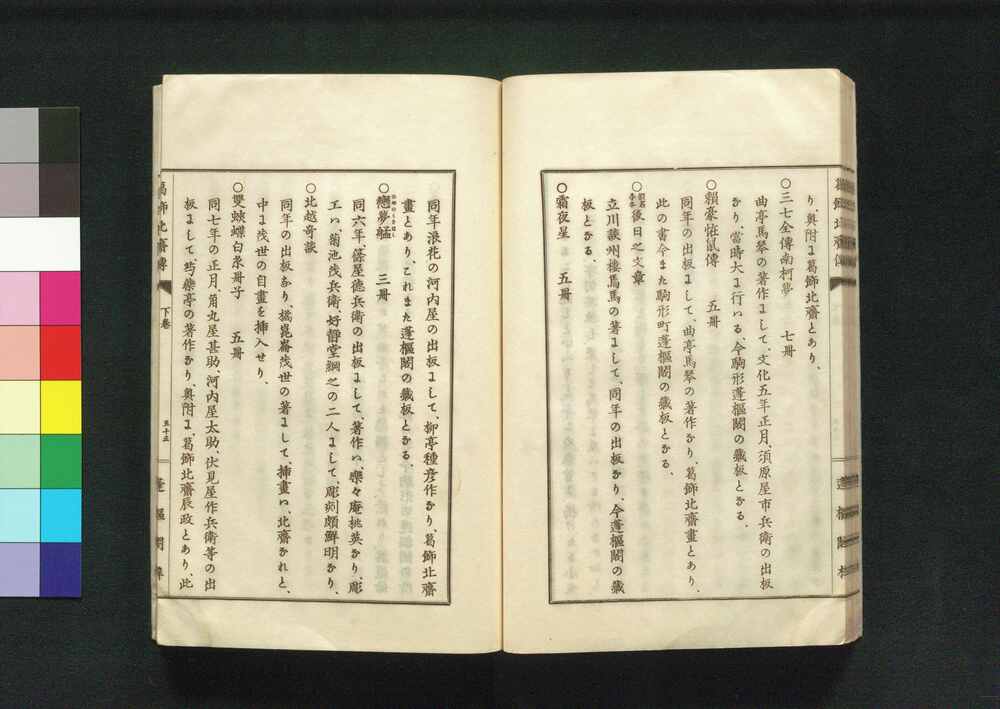 り、奥附に葛飾北齋とあり、
〇三七全傳南柯夢 七冊
曲亭馬琴の著作にして、文化五年正月、須原屋市兵衛の出板
なり、當時大に行はる、今駒形蓬樞閣の藏板となる、
〇賴豪恠鼠傳 五冊
同年の出板にして、曲亭馬琴の著作なり、葛飾北齋畫とあり、
此の書今また駒形町蓬樞閣の藏板となる、
〇後日之文章
立川談州樓焉馬の著にして、同年の出板なり、今蓬樞閣の藏
板となる、
〇霜夜星 五冊
同年浪花の河内屋の出板にして、柳亭種彦作なり、葛飾北齋
畫とあり、これまた蓬樞閣の藏板となる、
〇戀夢艋 三冊
同六年、篠屋德兵衛の出板にして、著作は、樂々庵桃英なり、彫
工は、菊池茂兵衛、好靜堂綱之の二人にして、彫刻頗鮮明なり、
〇北越奇談
同年の出板なり、橘崑崙茂世の著にして、挿畫は、北齋なれと、
中に茂世の自畫を挿入せり、
〇雙蛺蝶白糸冊子 五冊
同七年の正月、角丸屋甚助、河内屋太助、伏見屋作兵衛等の出
板にして、芍藥亭の著作なり、奥附に、葛飾北齋辰政とあり、此
葛飾北齋傳
下巻
五十五
蓬樞閣梓